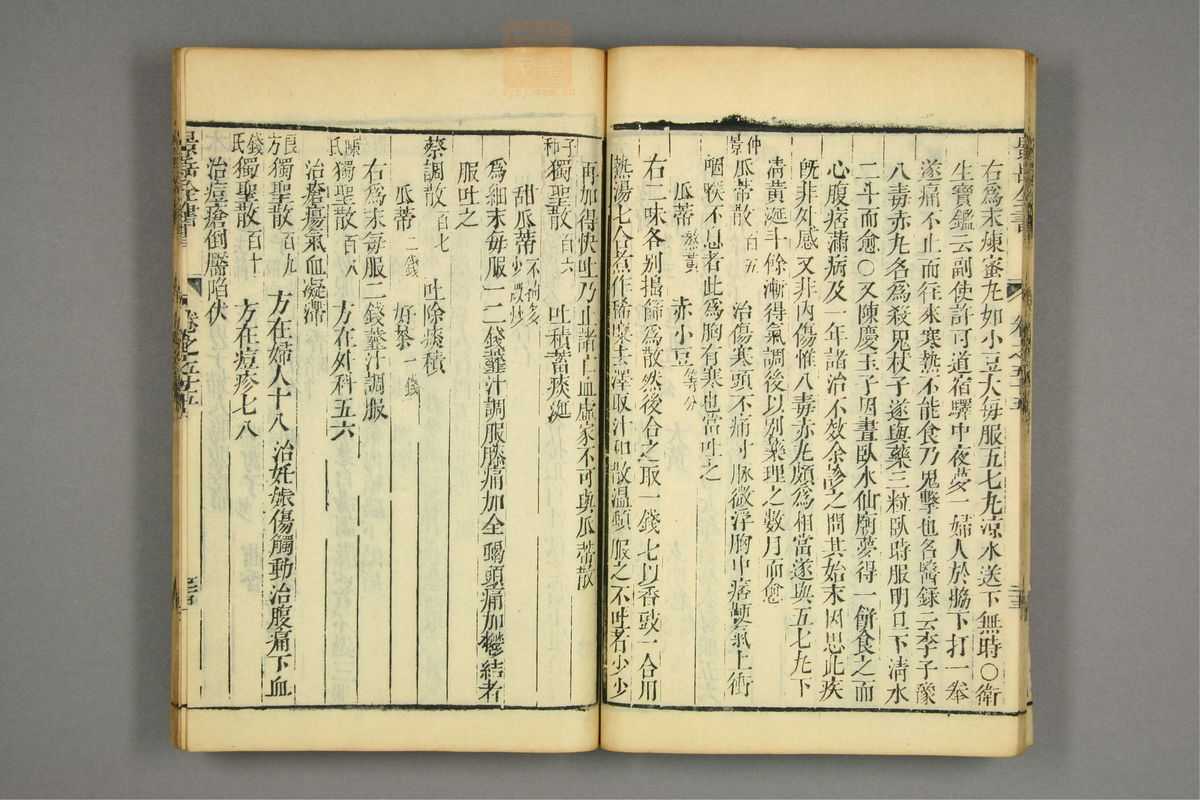 右爲末煉蜜九如小豆大每服五七九凉水送下無時○衛
生寶鑑云副使許可道宿驛中夜夢一婦人於脇下打一拳
遂痛不止而往來寒熱不能食乃鬼擊也名醫錄云李子豫
八毒赤九名爲殺鬼杖子遂與藥三粒臥時服明旦下淸水
二斗而愈○又陳慶玉子因晝臥水仙廟夢得一餅食之而
心腹痞滿病及一年諸治不效余診之問其始末因思此疾
旣非外感又非內傷惟八毒赤九頗爲相當遂與五七九下
淸黃涎斗餘漸得氣調後以別藥理之數月而愈
仲景瓜蒂散百五 治傷寒頭不痛寸脉微浮胸中痞鞕氣上衝
咽喉不息者此爲胸有寒也當吐之
瓜蒂熬黃 赤小豆等分
右二味各别搗篩爲散然後合之取一錢匕以香豉一合用
熱湯七合煮作稀糜去滓取汁和散温頓服之不吐者少少
再加得快吐乃止諸亡血虛家不可與瓜蒂散
子和獨聖散百六 吐積蓄痰涎
甜瓜蒂不拘多少微炒
爲細末每服一二錢虀汁調服膝痛加全蝎頭痛加鬱結者
服吐之
蔡調散百七 吐除痰積
瓜蒂二錢 好茶一錢
右爲末每服二錢虀汁調服
陳氏獨聖散百八 方在外科五六
治瘡瘍氣血凝滯
良方獨聖散百九 方在婦人十八 治妊娠傷觸動治腹痛下血
錢氏獨聖散百十 方在痘疹七八
治痘瘡倒靨陷伏
景岳全書 卷之五十五